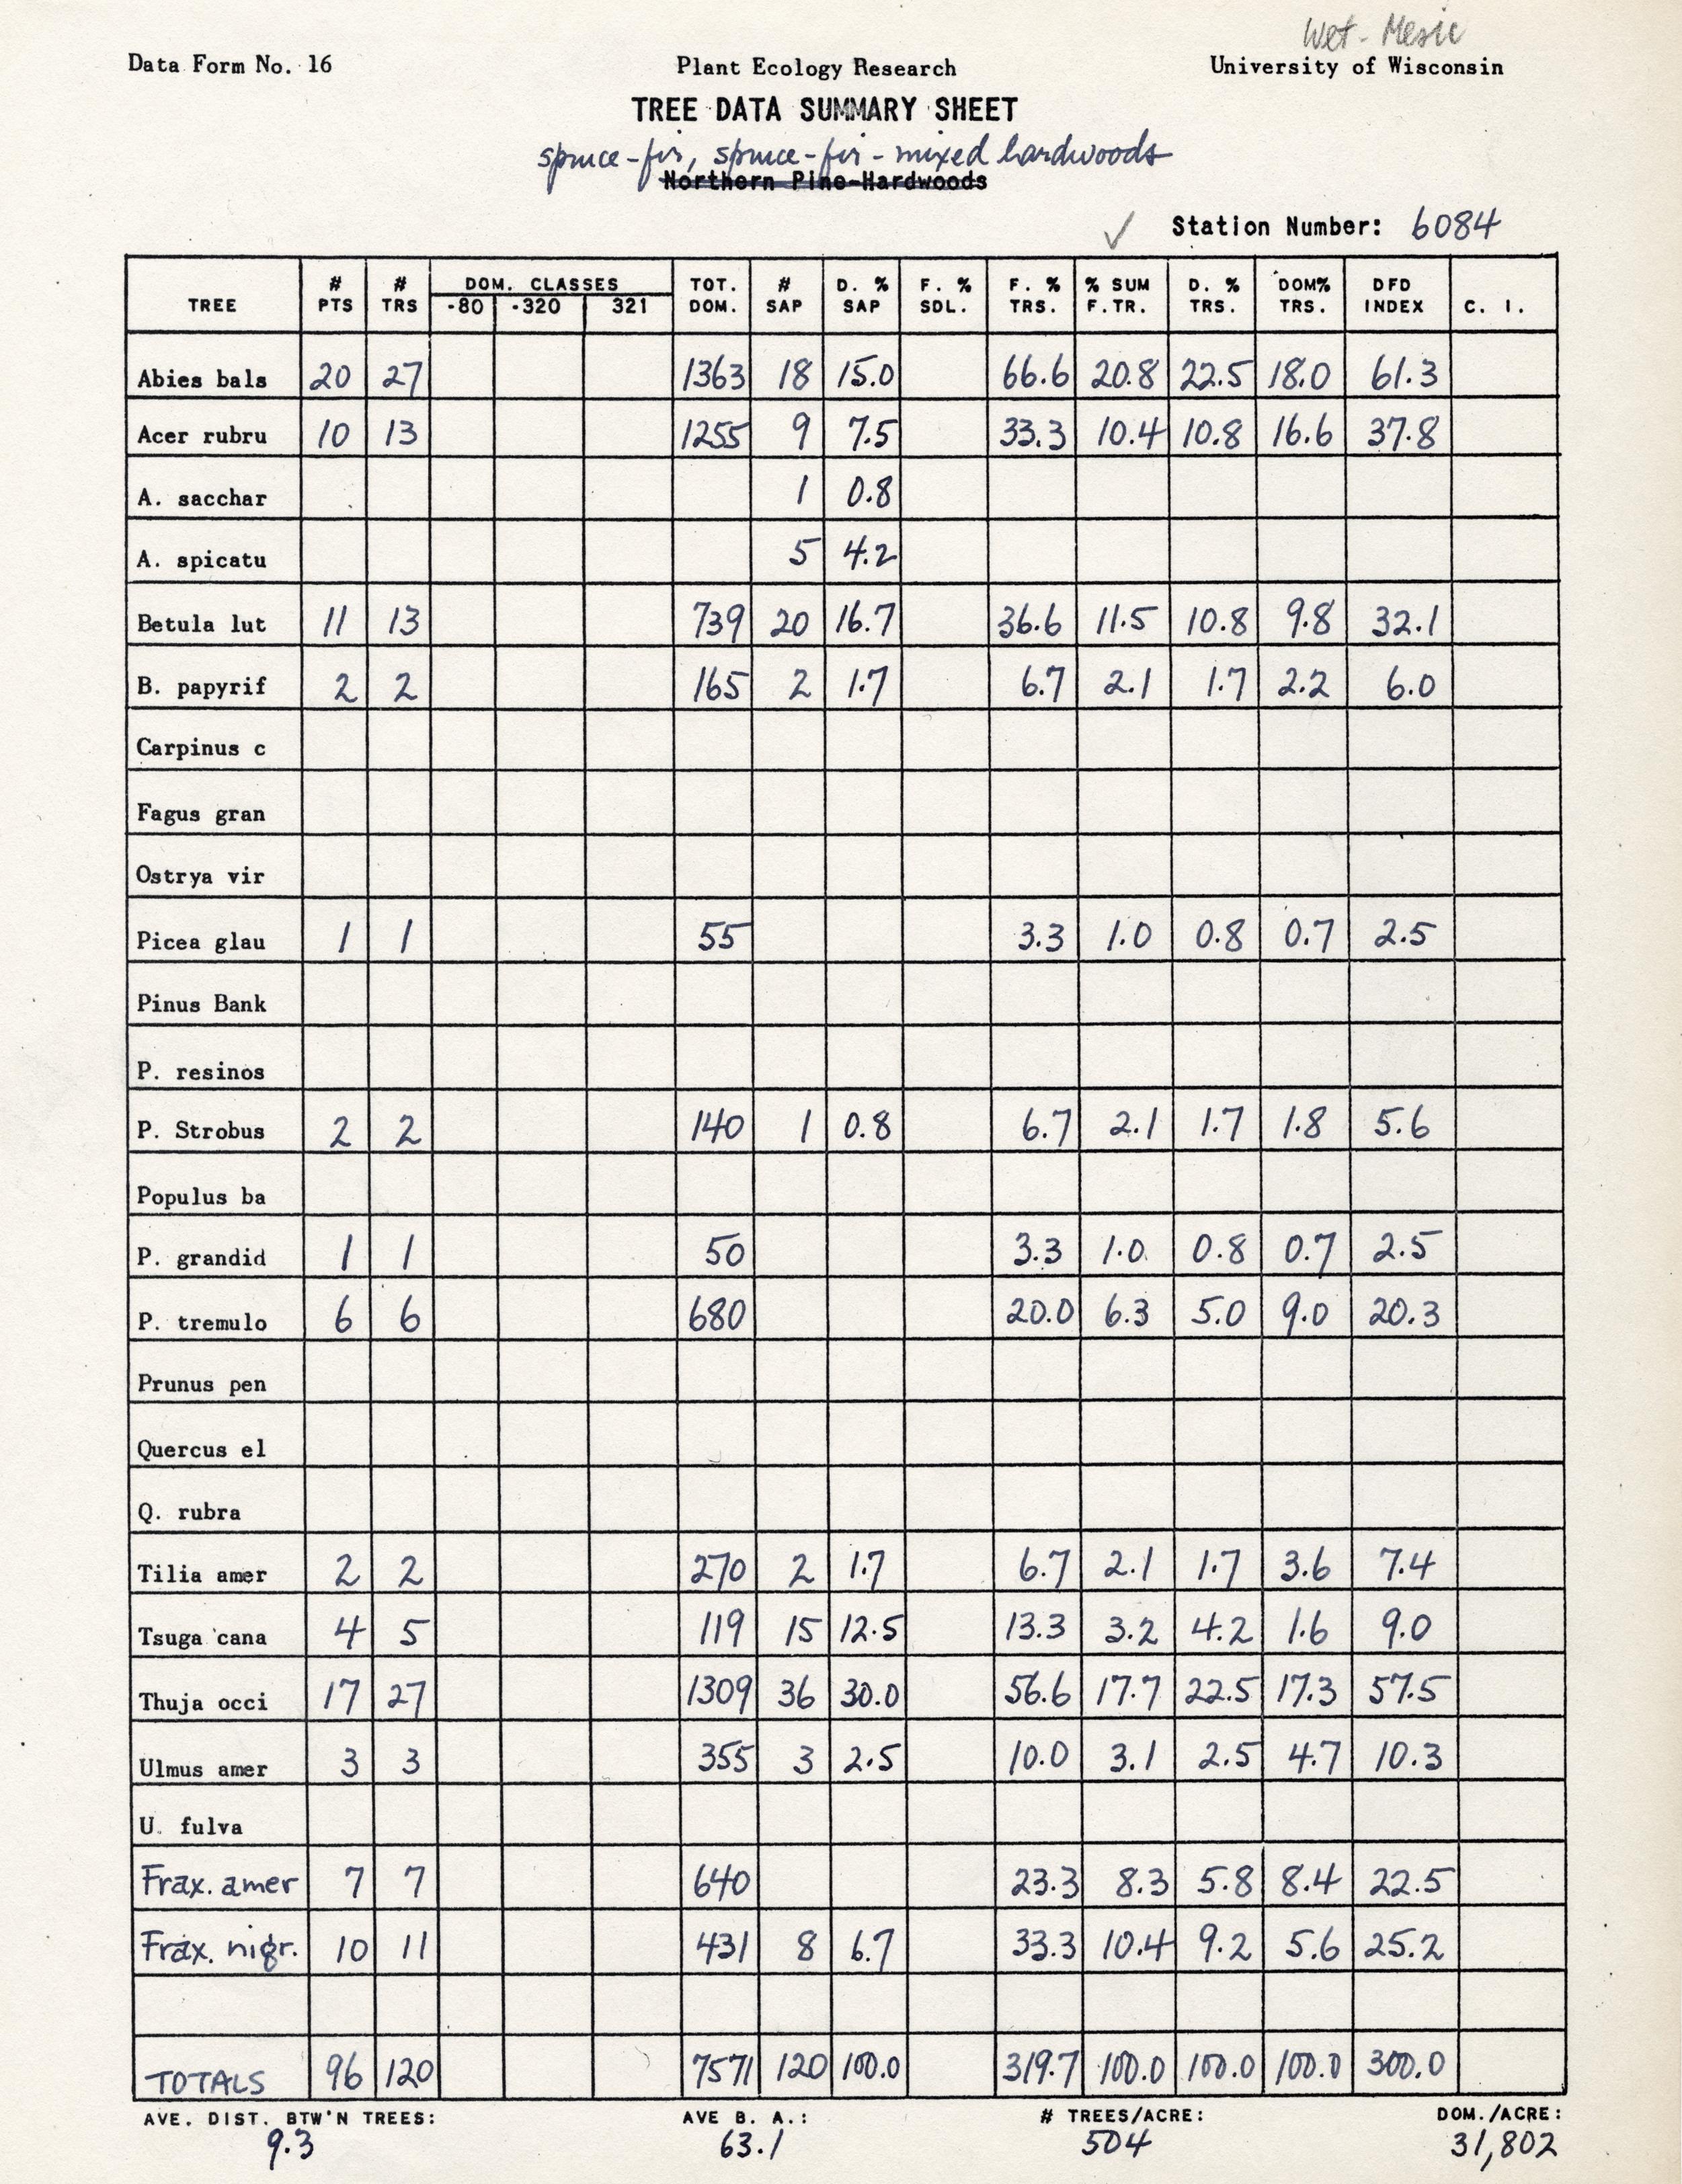 Wet-Mesic
Data Form No. 16 Plant Ecology Research University of Wisconsin
TREE DATA SUMMARY SHEET
spruce-fir, spruce-fir-mixed hardwoods
Northern Pine-Hardwoods
✓ Station Number: 6084
TREE # PTS # TRS DOM. CLASSES -80 -320 321 TOT. DOM. # SAP D. % SAP F. % SDL. F. % TRS. % SUM F.TR. D. % TRS. DOM% TRS. DFD INDEX C. I.
Abies bals 20 27 1363 18 15.0 66.6 20.8 22.5 18.0 61.3
Acer rubru 10 13 1255 9 7.5 33.3 10.4 10.8 16.6 37.8
A. sacchar 1 0.8
A. spicatu 5 4.2
Betula lut 11 13 739 20 16.7 36.6 11.5 10.8 9.8 32.1
B. papyrif 2 2 165 2 1.7 6.7 2.1 1.7 2.2 6.0
Carpinus c
Fagus gran
Ostrya vir
Picea glau 1 1 55 3.3 1.0 0.8 0.7 2.5
Pinus Bank
P. resinos
P. Strobus 2 2 140 1 0.8 6.7 2.1 1.7 1.8 5.6
Populus ba
P. grandid 1 1 50 3.3 1.0 0.8 0.7 2.5
P. tremulo 6 6 680 20.0 6.3 5.0 9.0 20.3
Prunus pen
Quercus el
Q. rubra
Tilia amer 2 2 270 2 1.7 6.7 2.1 1.7 3.6 7.4
Tsuga cana 4 5 119 15 12.5 13.3 3.2 4.2 1.6 9.0
Thuja occi 17 27 1309 36 30.0 56.6 17.7 22.5 17.3 57.5
Ulmus amer 3 3 355 3 2.5 10.0 3.1 2.5 4.7 10.3
U. fulva
Frax. amer 7 7 640 23.3 8.3 5.8 8.4 22.5
Frax. nigr. 10 11 431 8 6.7 33.3 10.4 9.2 5.6 25.2
TOTALS 96 120 7571 120 100.0 319.7 100.0 100.0 100.0 300.0
AVE. DIST. BTW'N TREES: AVE B. A.: # TREES/ACRE: DOM./ACRE:
9.3 63.1 504 31,802